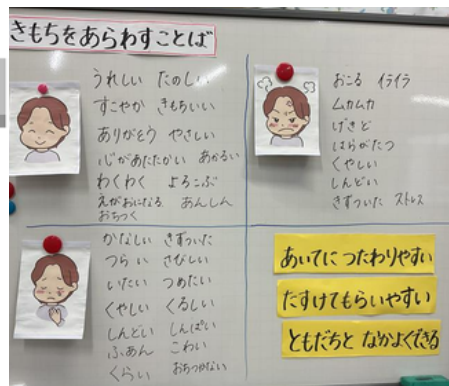 きもちをあらわすことば
うれしい たのしい
すこやか きもちいい
ありがとう やさしい
心があたたかい あかるい
わくわく よろこぶ
えがおになる あんしん
おちつく
おこる イライラ
ムカムカ
げきど
はらがたつ
くやしい
しんどい
きずついた ストレス
かなしい きずついた
つらい さびしい
いたい つめたい
くやしい くるしい
しんどい しんぱい
ふあん こわい
くらい おちつかない
あいてに つたわりやすい
たすけてもらいやすい
ともだちと なかよくできる